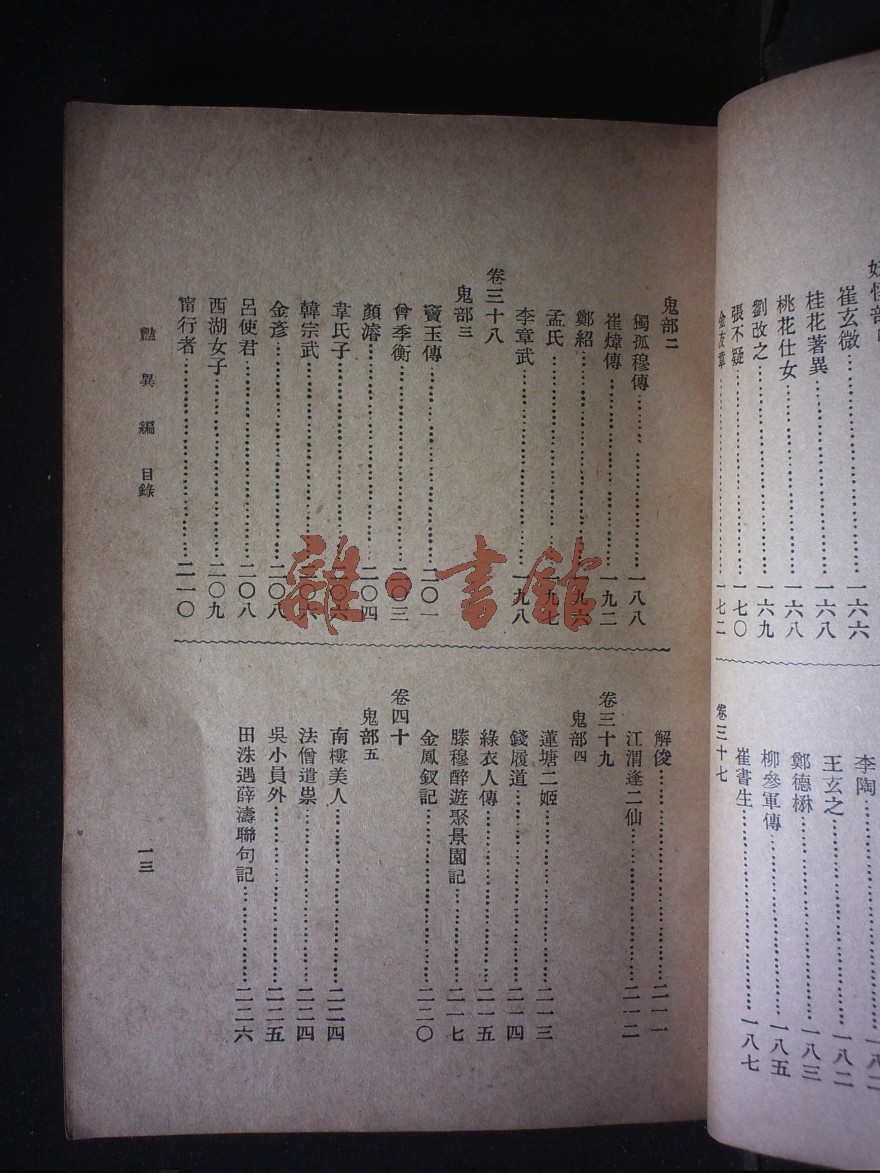 崔玄微……一六六
桂花著異……一六八
桃花仕女……一六八
劉改之……一六九
張不疑……一七〇
金友章……一七二
李陶
王玄之……一八二
鄭德楙……一八三
柳參軍傳……一八五
崔書生……一八七
卷三十七
鬼部二
獨孤穆傳……一八八
崔煒傳……一九二
鄭紹……一九六
孟氏……一九七
李章武……一九八
卷三十八
鬼部三
竇玉傳……二〇一
曾季衡……二〇三
顏濬……二〇四
韋氏子……二〇六
韓宗武……二〇六
金彥……二〇八
呂使君……二〇八
西湖女子……二〇九
甯行者……二一〇
解俊……二一一
江渭逢二仙……二一二
卷三十九
鬼部四
蓮塘二姬……二一三
錢履道……二一四
綠衣人傳……二一五
滕穆醉遊聚景園記……二一七
金鳳釵記……二二〇
卷四十
鬼部五
南樓美人……二二四
法僧遣祟……二二四
吳小員外……二二五
田洙遇薛濤聯句記……二二六
豔異編 目錄
一三
雜·書館